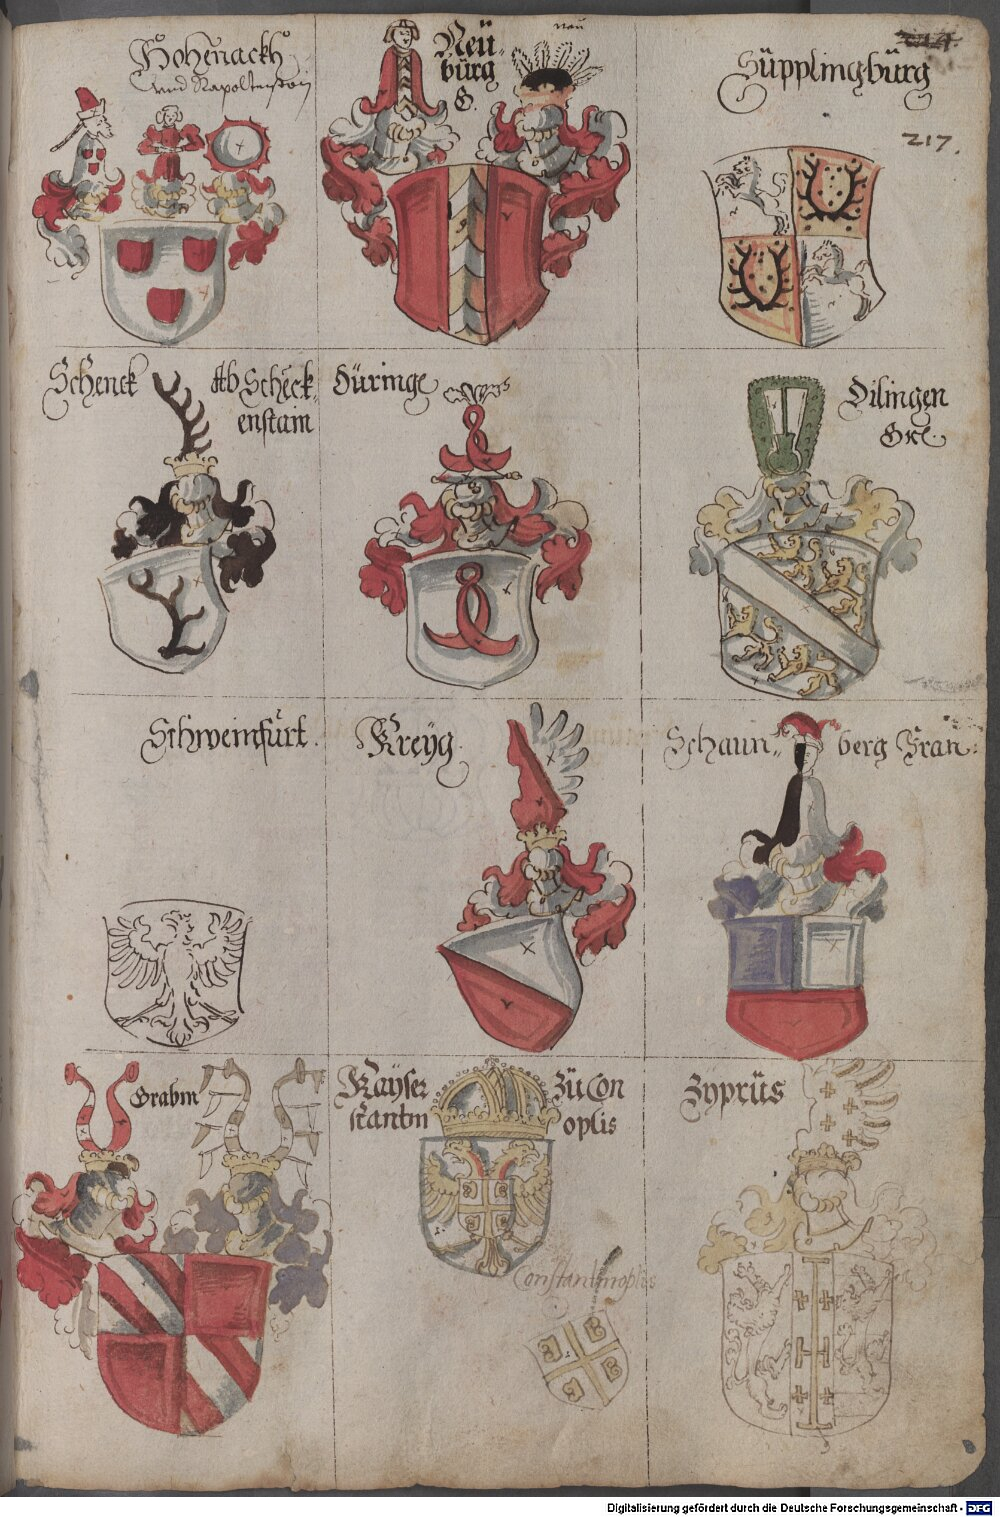 Hohenackh
vnd Rapoltenstain
Neü-
bürg
G.
Süpplingbürg
217.
Schenck
Ab Schenck-
enstain
Düringe
Dilingen
Schweinfürt.
Kreÿg.
Schaun-
berg Fran:
Grabm
Kaÿser
zü Con
stantin
oplis
Constantinoplis
Zÿprüs
Digitalisierung gefördert durch die Deutsche Forschungsgemeinschaft - DFG